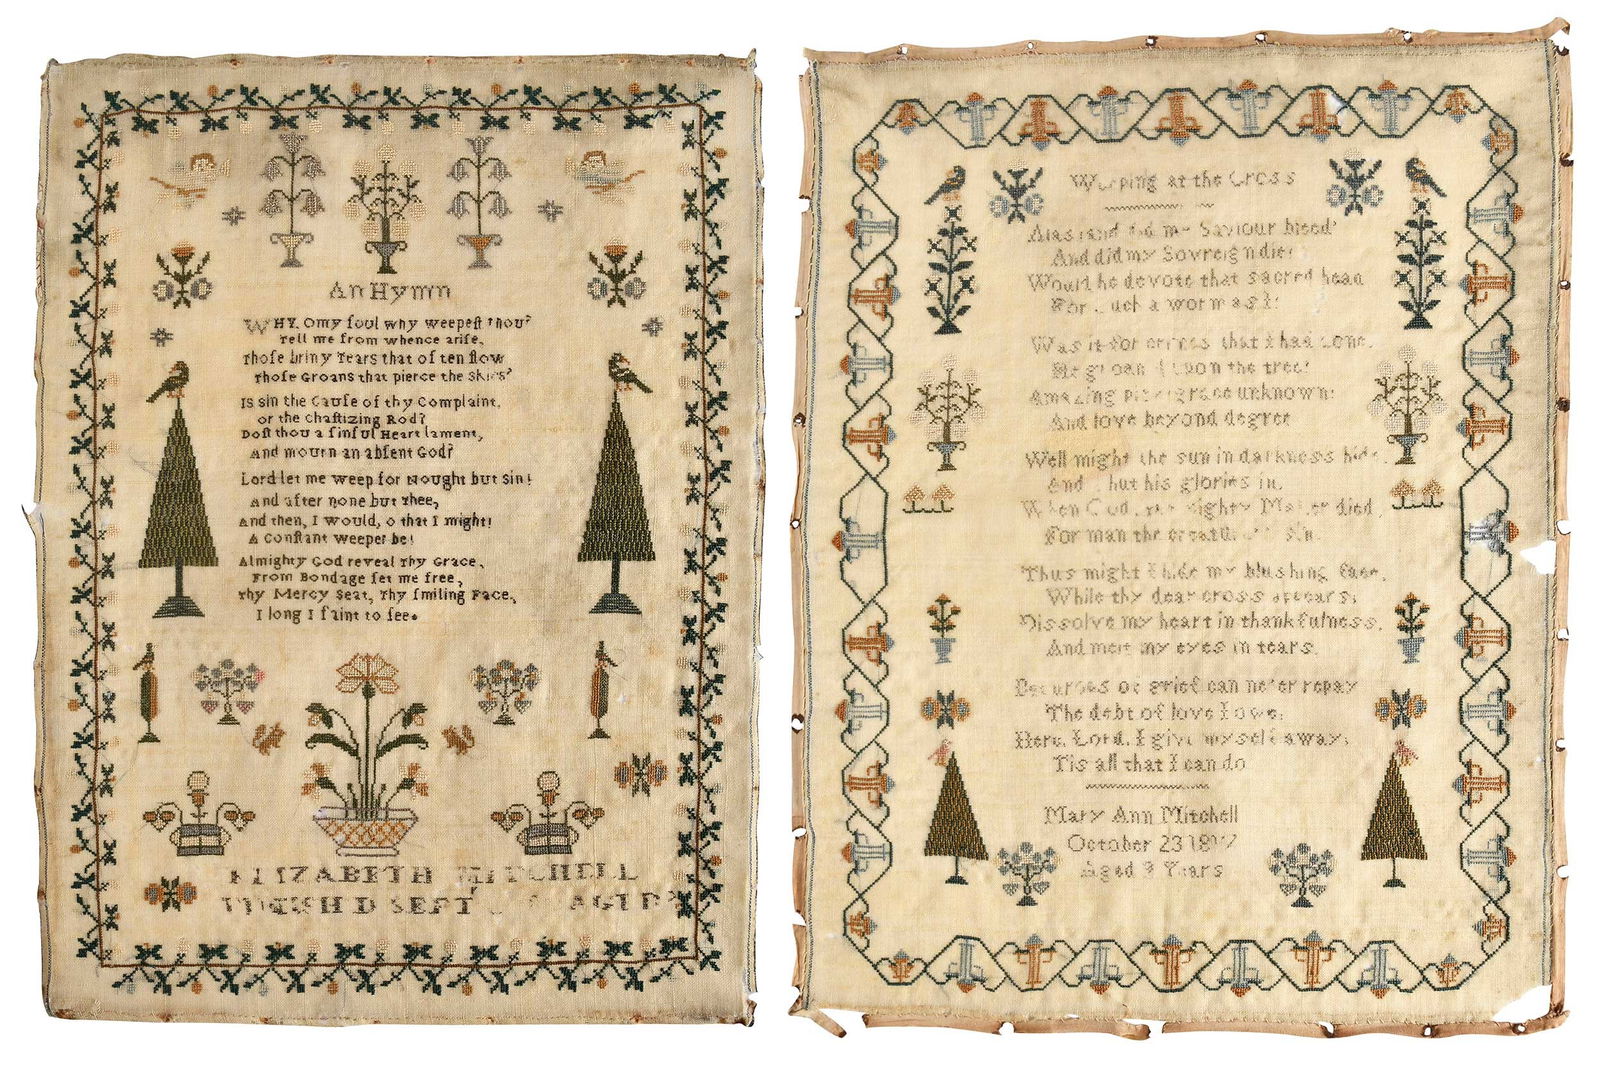 An Hymn
WHY, O my ſoul why weepeſt thou?
Tell me from whence ariſe,
Thoſe briny Tears that often flow
Thoſe Groans that pierce the Skies?
IS sin the Cauſe of thy Complaint,
or the Chaſtizing Rod?
Doſt thou a ſinful Heart lament,
And mourn an abſent God?
Lord let me weep for Nought but Sin!
And after none but Thee,
And then, I would, o that I might!
A Conſtant weeper be!
Almighty God reveal Thy Grace,
From Bondage ſet me free,
Thy Mercy Seat, Thy ſmiling Face,
I long I faint to ſee.
ELIZABETH MITCHELL
FINISH D SEPT AGED
Weeping at the Cross
Alas and did my Saviour bleed
And did my Sovreign die
Would he devote that sacred head
For such a worm as I
Was it for crimes that I had done,
He groan d upon the tree
Amazing pity grace unknown
And love beyond degree
Well might the sun in darkness hide,
And shut his glories in,
When God, the mighty Maker died,
For man the creature's sin.
Thus might I hide my blushing face,
While thy dear cross appears,
Dissolve my heart in thankfulness,
And melt my eyes in tears.
of grief can ne'er repay
The debt of love I owe,
Here, Lord, I give myself away,
Tis all that I can do
Mary Ann Mitchell
October 23
Aged 9 Years